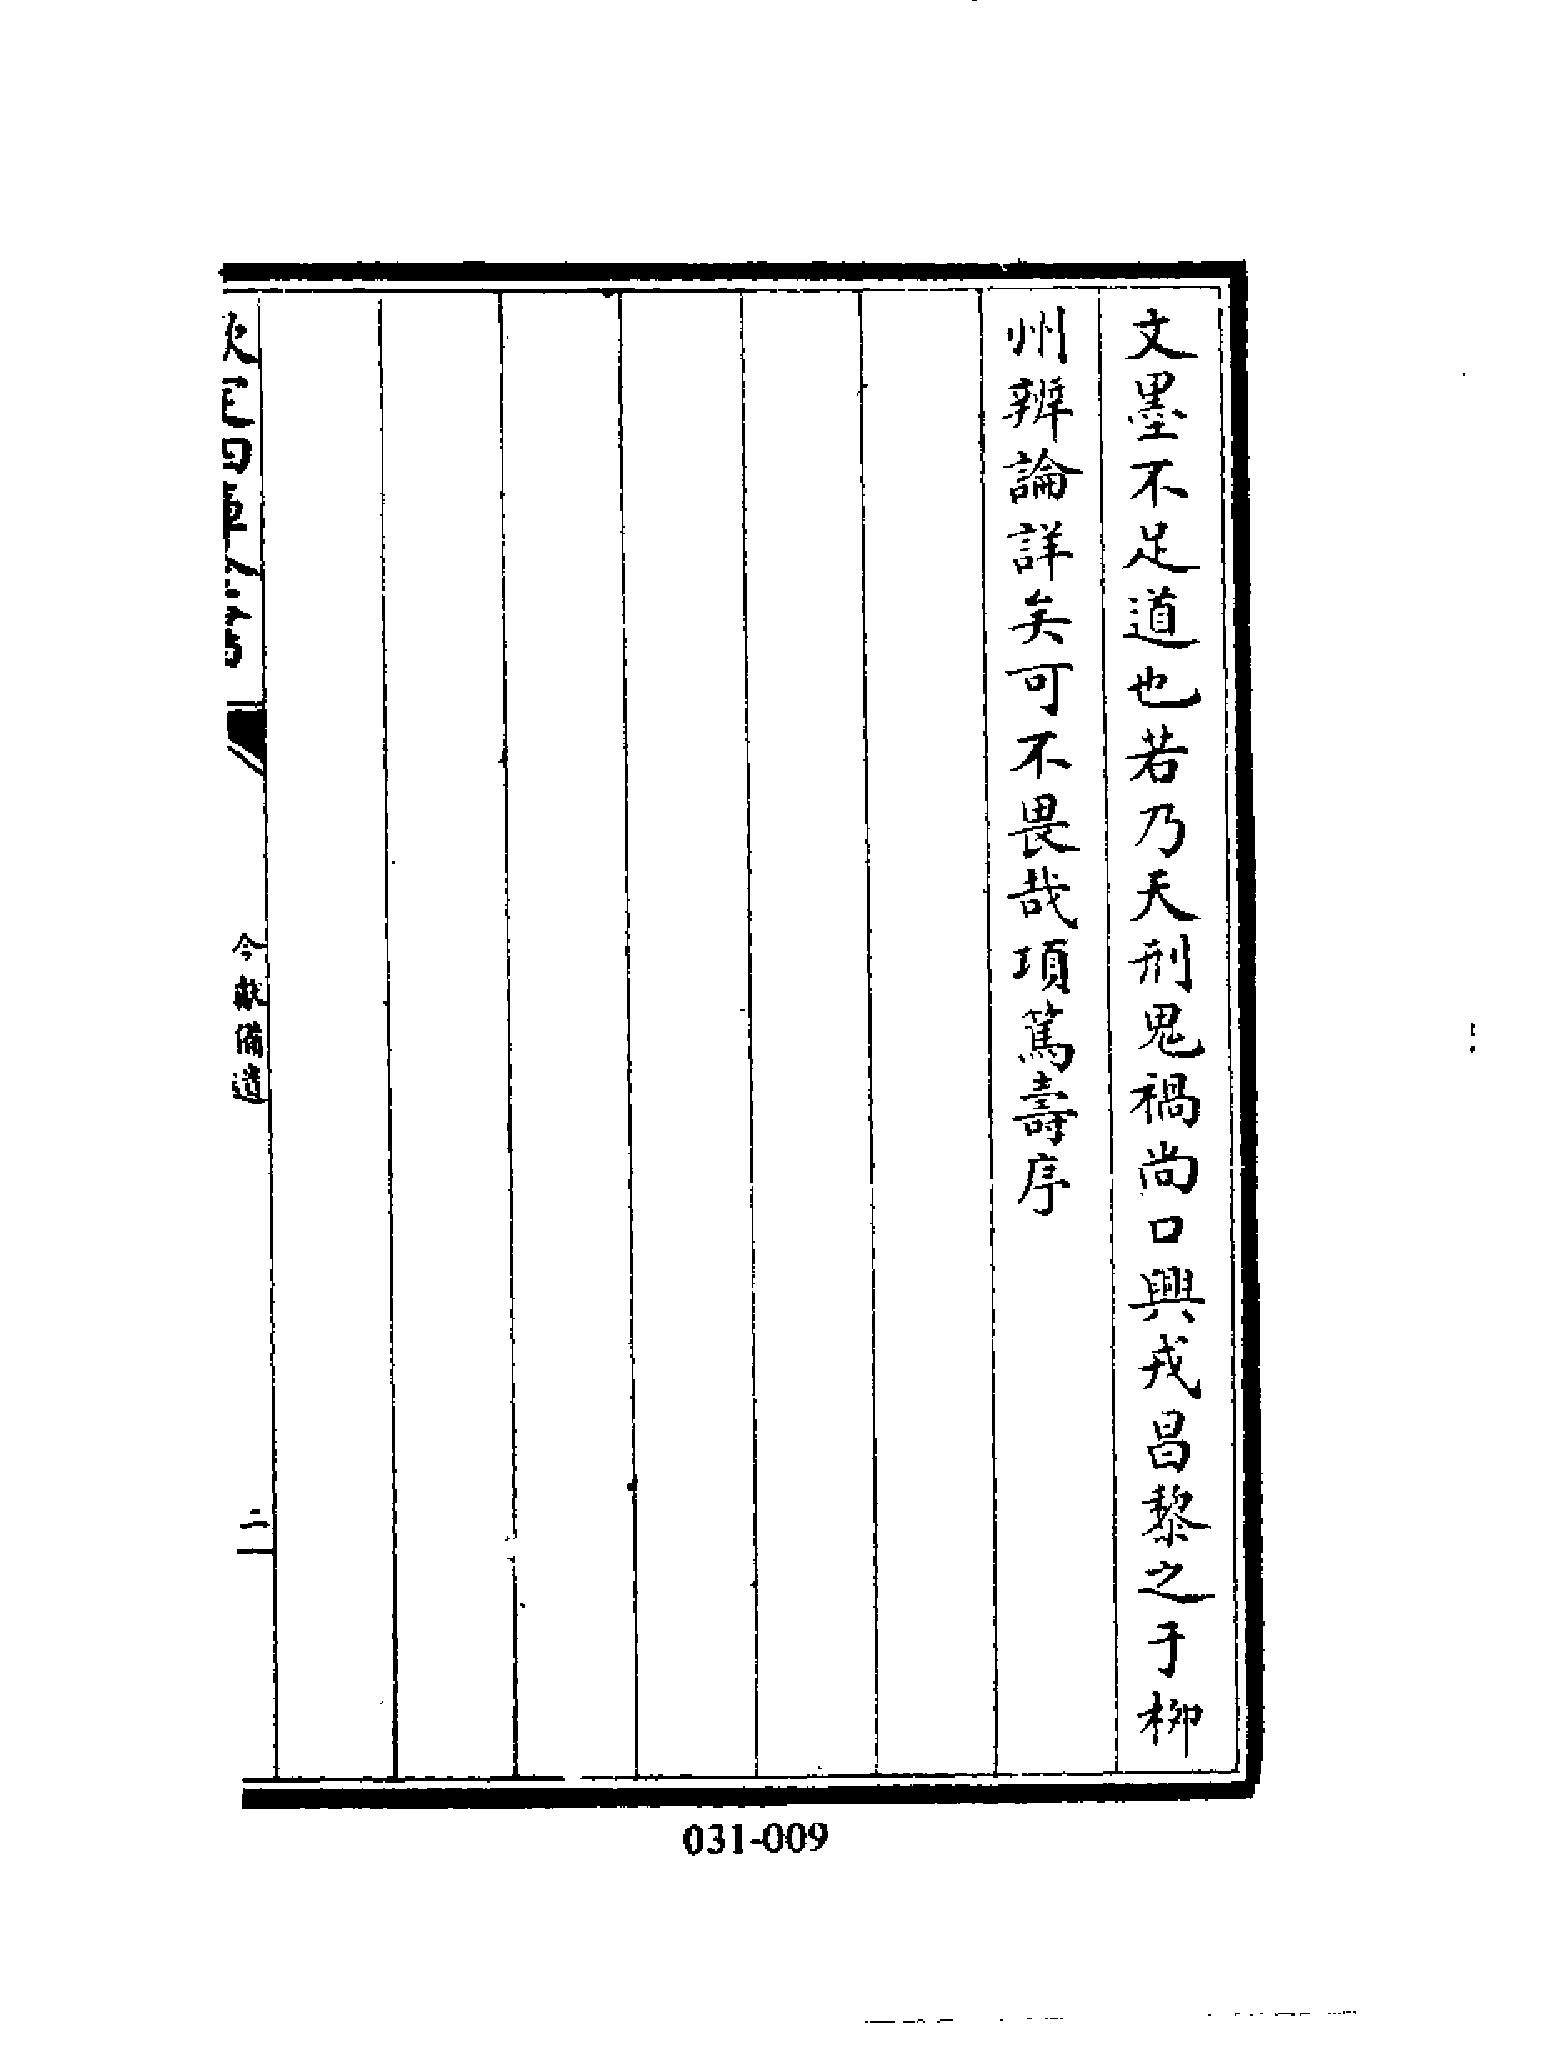 文墨不足道也若乃天刑鬼禍尚口興戎昌黎之于柳
州辨論詳矣可不畏哉項篤壽序
欽定四庫全書
今獻備遺
二
031-009